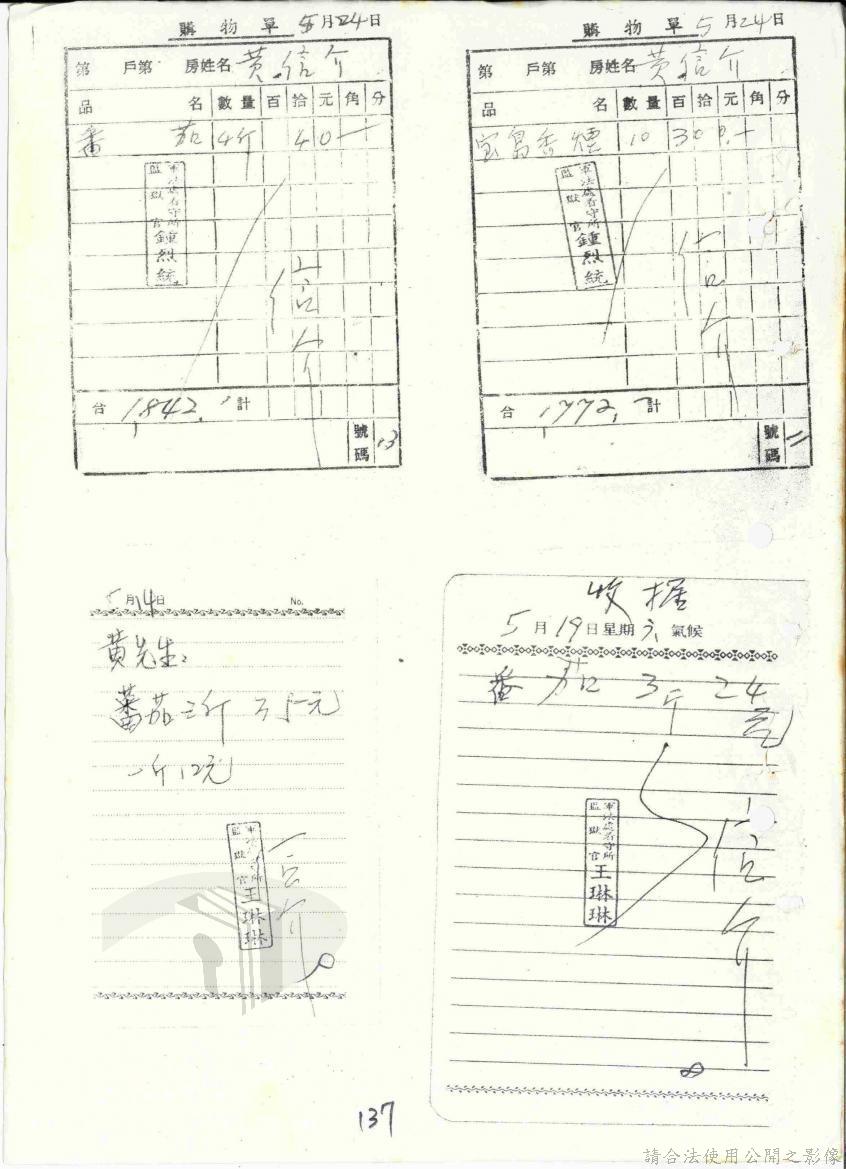 購物單 5月24日
第 戶第 房姓名 黃信介
品 名 數量 百 拾 元 角 分
番茄 4斤 4 0 一
軍法處看守所
監獄官 鍾烈統
信介
合 1842. 計
號碼 13
購物單 5月24日
第 戶第 房姓名 黃信介
品 名 數量 百 拾 元 角 分
宝島香煙 10 3 0 0 一
軍法處看守所
監獄官 鍾烈統
信介
合 1772. 計
號碼 11
5月14日 No.
黃先生:
蕃茄三斤 35元
一斤12元
軍法處看守所
監獄官 王琳琳
信介
收据
5月19日星期六 氣候
番茄 3斤 24元
軍法處看守所
監獄官 王琳琳
信介
137
請合法使用公開之影像